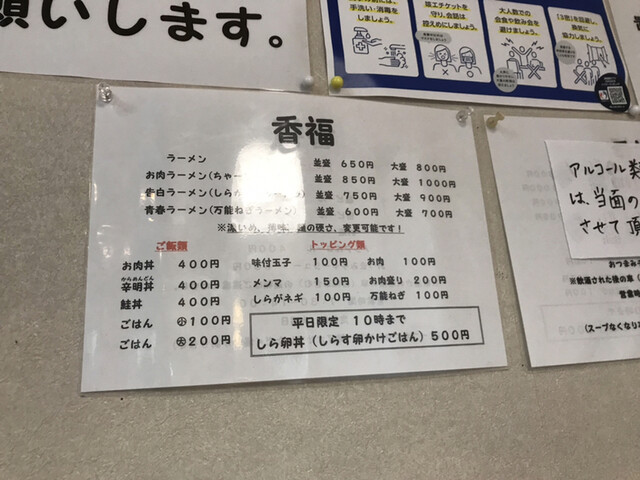 願いします。
手洗い・消毒を
しましょう。
咳エチケットを
守り、会話は
控えめにしましょう。
大人数での
会食や飲み会を
避けましょう。
「3密」を回避し、
換気に
協力しましょう。
香福
ラーメン 並盛 650円 大盛 800円
お肉ラーメン(ちゃー 並盛 850円 大盛 1000円
告白ラーメン(しらが ラーメン) 並盛 750円 大盛 900円
青春ラーメン(万能ねぎラーメン) 並盛 600円 大盛 700円
の硬さ、変更可能です!
ご飯類 トッピング類
お肉丼 400円 味付玉子 100円 お肉 100円
からめんどん
辛明丼 400円 メンマ 150円 お肉盛り 200円
鮭丼 400円 しらがネギ 100円 万能ねぎ 100円
ごはん ㊥100円
ごはん 200円
平日限定 10時まで
しら卵丼(しらす卵かけごはん)500円
アルコール類
は、当面の
させて頂
おつまみ
※飲酒された後の車(
営業時
(スープなくなり